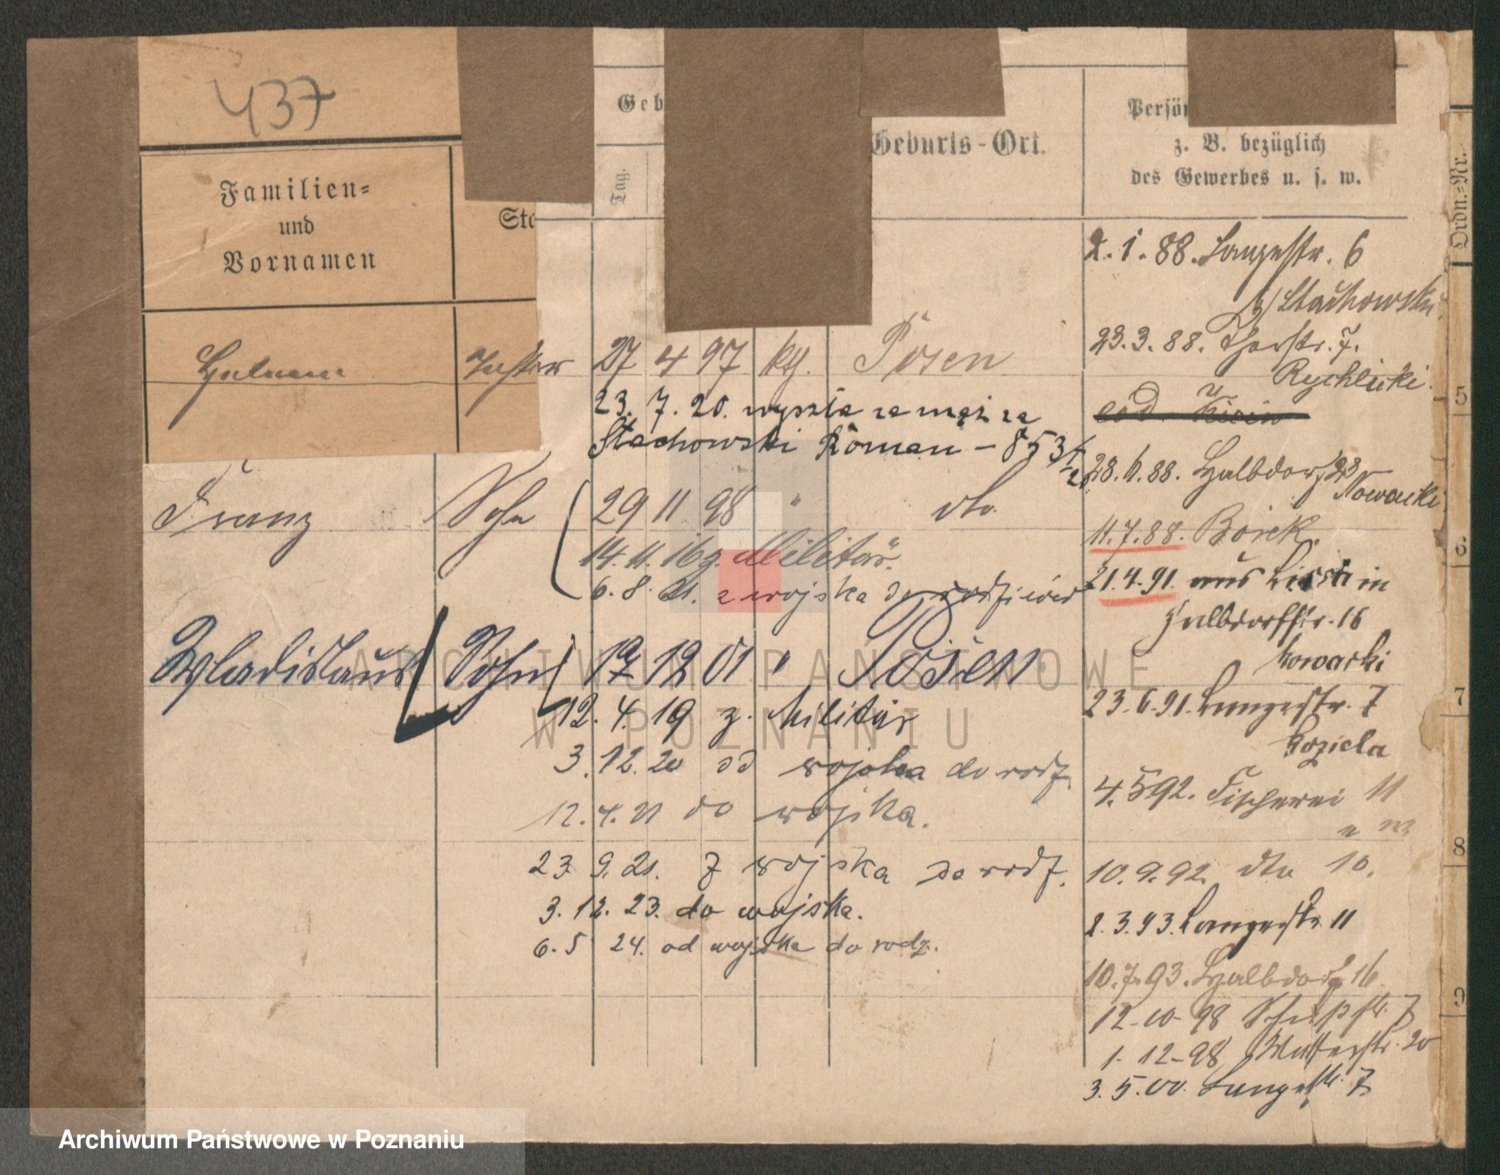 437
Familien=
und
Vornamen
Geb
Tag.
Geburts-Ort.
Persön
z. B. bezüglich
des Gewerbes u. s. w.
Ordn.-Nr.
27 4 97 kg. Posen
23. 7. 20. wyszła za mąż za
Stachowski Roman - 853
Franz Sohn 29 11 98 " dto.
14. 11. 16 z. Militär.
6. 8. 21. z wojska do rodziców
Wladislaus Sohn 12 01 " Posen
12. 4. 19 z. Militär
3. 12. 20 od wojska do rodz.
12. 4. 21 do wojska.
23 9. 21. z wojska do rodz.
3. 12. 23. do wojska.
6. 5 24. od wojska do rodz.
2. 1. 88. Langestr. 6
b/ Stachowski
23. 3. 88. Thorstr. 7.
Rychlicki.
28. 6. 88. Halbdorf 23
Nowacki
11. 7. 88. Borek.
21. 4. 91. aus Lissa in
Halbdorfstr. 16
Nowacki
23. 6. 91. Langestr. 7
Koziela
4. 5 92. Fischerei 11
10. 9. 92 dto 10.
2. 3. 93. Langestr. 11
10. 7. 93. Halbdorf 16.
12-10-98 7
1. 12-98 Wasserstr. 20
3. 5. 00. Langestr. 7
5
6
7
8
9
ARCHIWUM PAŃSTWOWE
W POZNANIU
Archiwum Państwowe w Poznaniu